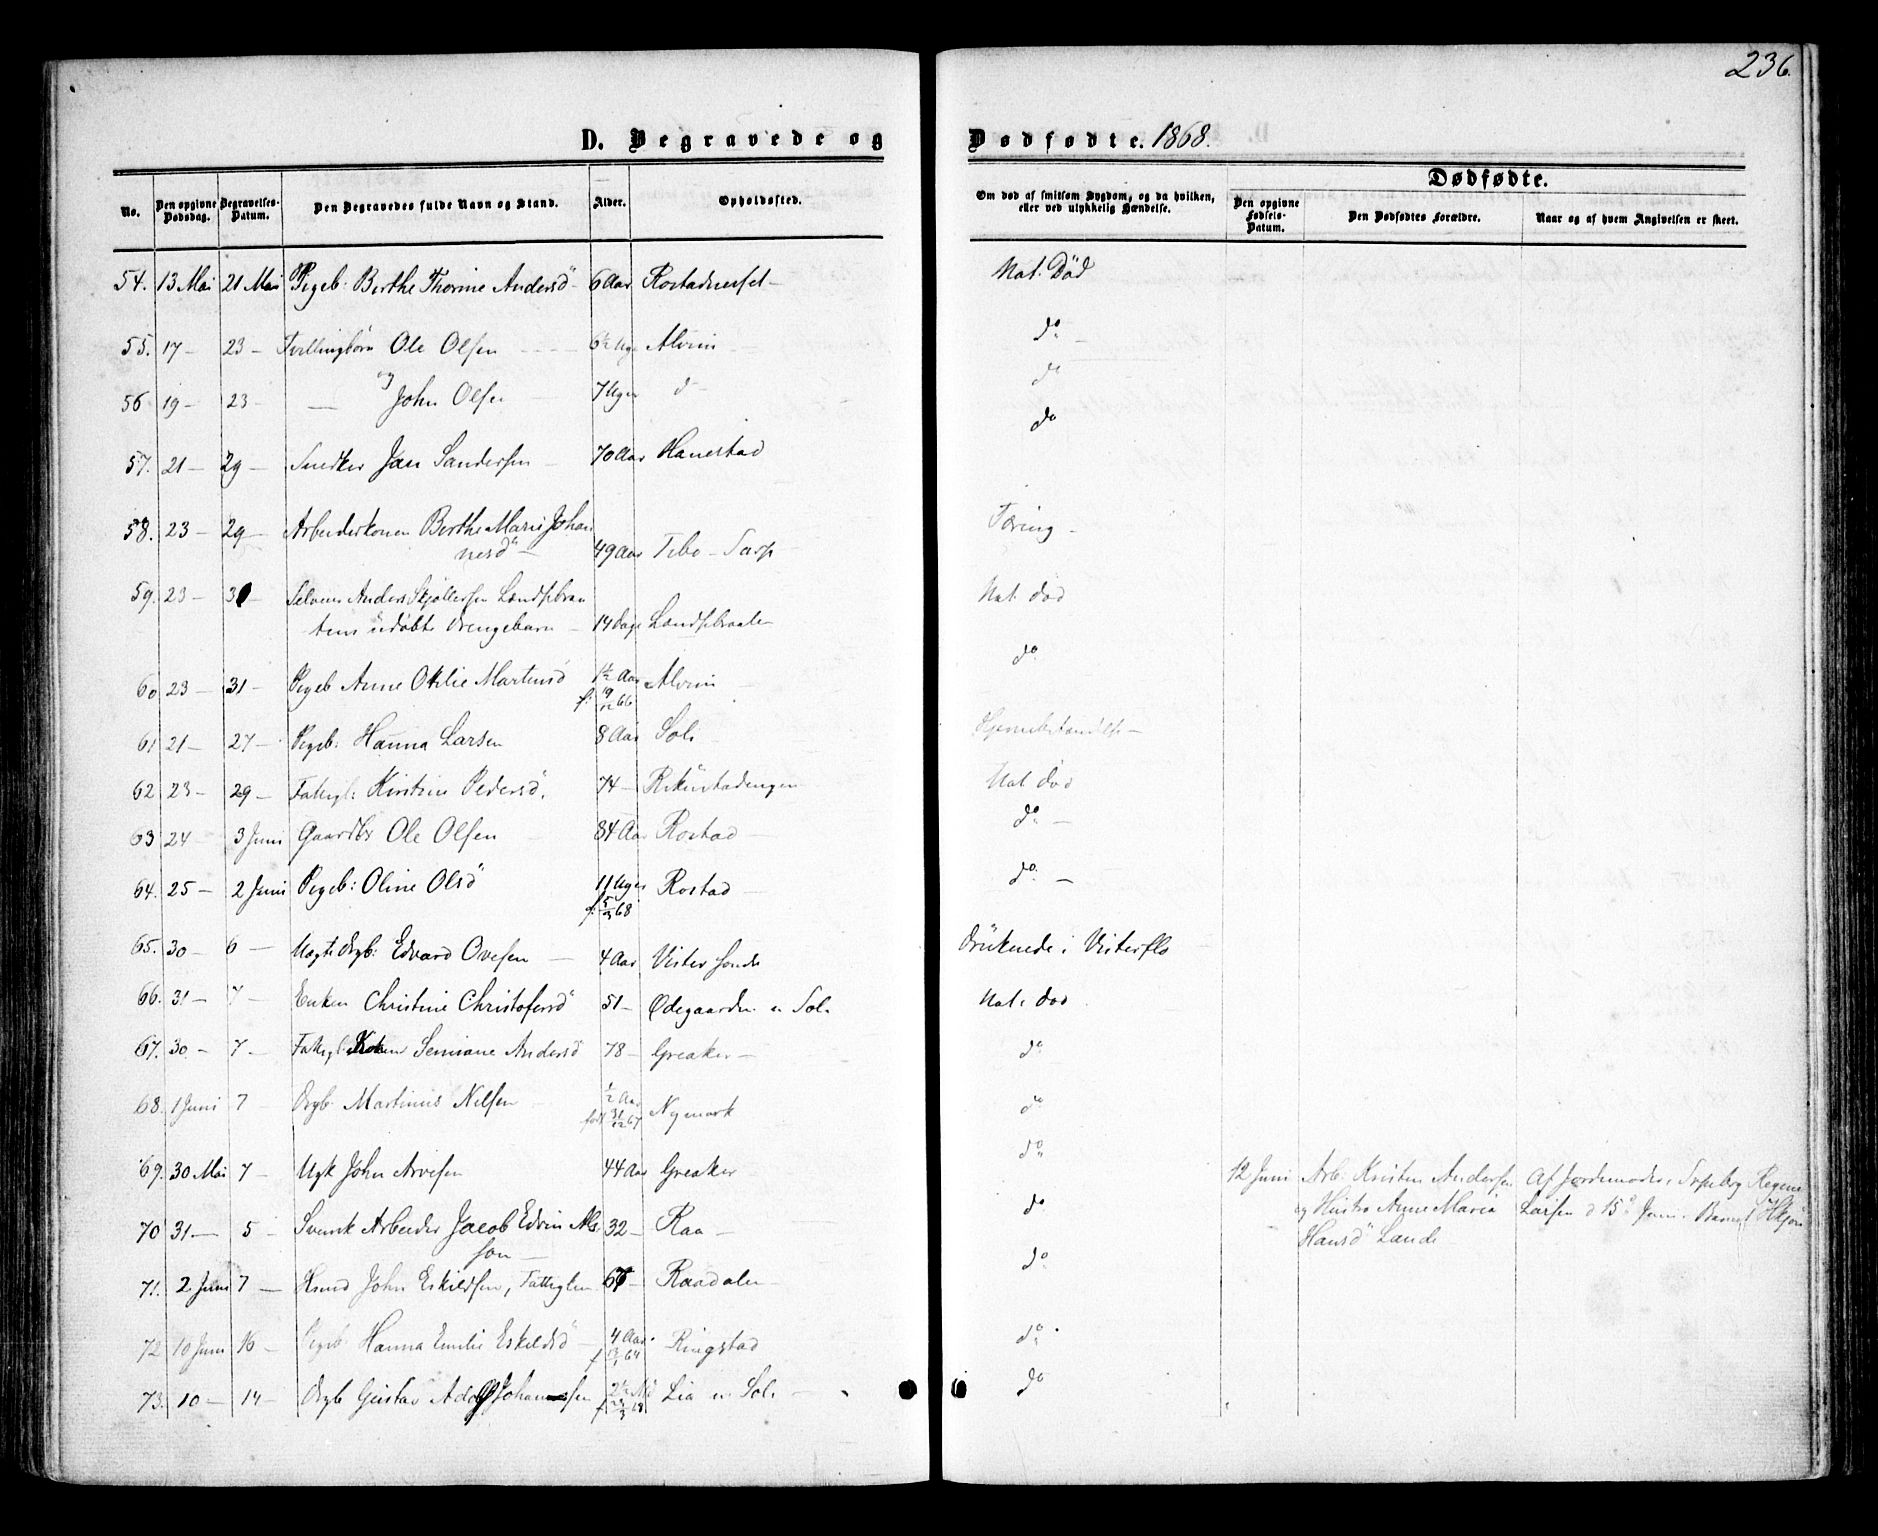 236.
D. Begravede og Dødfødte. 1868.
No.
Den opgivne Dødsdag.
Begravelses-Datum.
Den Begravedes fulde Navn og Stand.
Alder.
Opholdssted.
Om død af smitsom Sygdom, og da hvilken, eller ved ulykkelig Hændelse.
Dødfødte.
Den opgivne Fødsels-Datum.
Den Dødfødtes Forældre.
Naar og af hvem Angivelsen er skeet.
54. 13 Mai 21 Mai Pigeb: Berthe Thorine Andersd 6 Aar Rostadnesset Nat. Død
55. 17 - 23 - Tvillingbørn Ole Olsen 6½ Uge Alvim do
56 19 - 23 - og John Olsen 7 Uger d do
57. 21 - 29 - Snedker Jan Sandersen 70 Aar Hanestad do
58. 23 - 29 - Arbeiderkonen Berthe Marie Johan
nesd 49 Aar Tebo - Sarp Tæring -
59. 23 - 31 - Anders Skjøllersen Landsbraa
tens udøbte Drengebarn - 14 Dage Nat. død
60 23 - 31 - Pigeb Anne Otilie Martinsd 1½ Aar Alvim do
f. 19/12 66
61 21 - 27 - Pigeb: Hanna Larsen 8 Aar Soli
62 23 - 29 - Fattigl: Kirstine Pedersd. 74 - Nat død
63 24 3 Juni Gaardbr Ole Olsen 84 Aar Rostad do -
64. 25 - 2 Juni Pigeb: Oline Olsd 11 Uger Rostad do. -
f. 5/3 68
65. 30 - 6 - Drgb: Edvard Ovesen - 4 Aar Druknede i Visterflo
66. 31 - 7 - Enken Christine Christofersd 51 - Ødegaarden u. Soli Nat. død
67. 30 - 7 - Fattigl. Andersd 78 - Greaker - do
68. 1 Juni 7 Drgb. Martinus Nilsen ½ Aar Nymark do
født 31/12 67
69. 30 Mai 7 - Ugk John Arvesen 44 Aar Greaker do
70 31 - 5 - Svensk Arbeider Jacob Edvin Als
son - 32 - Raa - do
71. 2 Juni 7 - Knud John Eskildsen, Fattiglem 67 - Raadalen do
72 10 Juni 16 - Pigeb: Hanna Emilie Eskildsd - 4 Aar Ringstad do
f 64
73. 10 - 14 - Drgb Gustav Adolf Johannesen Lia u. Soli do
12 Juni Arb: Kristen Andersen Af Jordemoder Regine
og Hustru Anne Maria Larsen d 15 Juni.
Hansd Lande